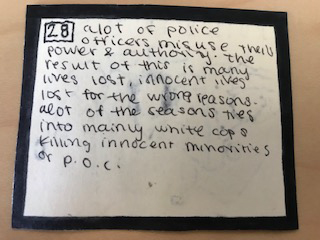 28 alot of police
officers misuse their
power & authority. the
result of this is many
lives lost, innocent lives
lost for the wrong reasons.
alot of the reasons ties
into mainly white cops
killing innocent minorities
or p.o.c.